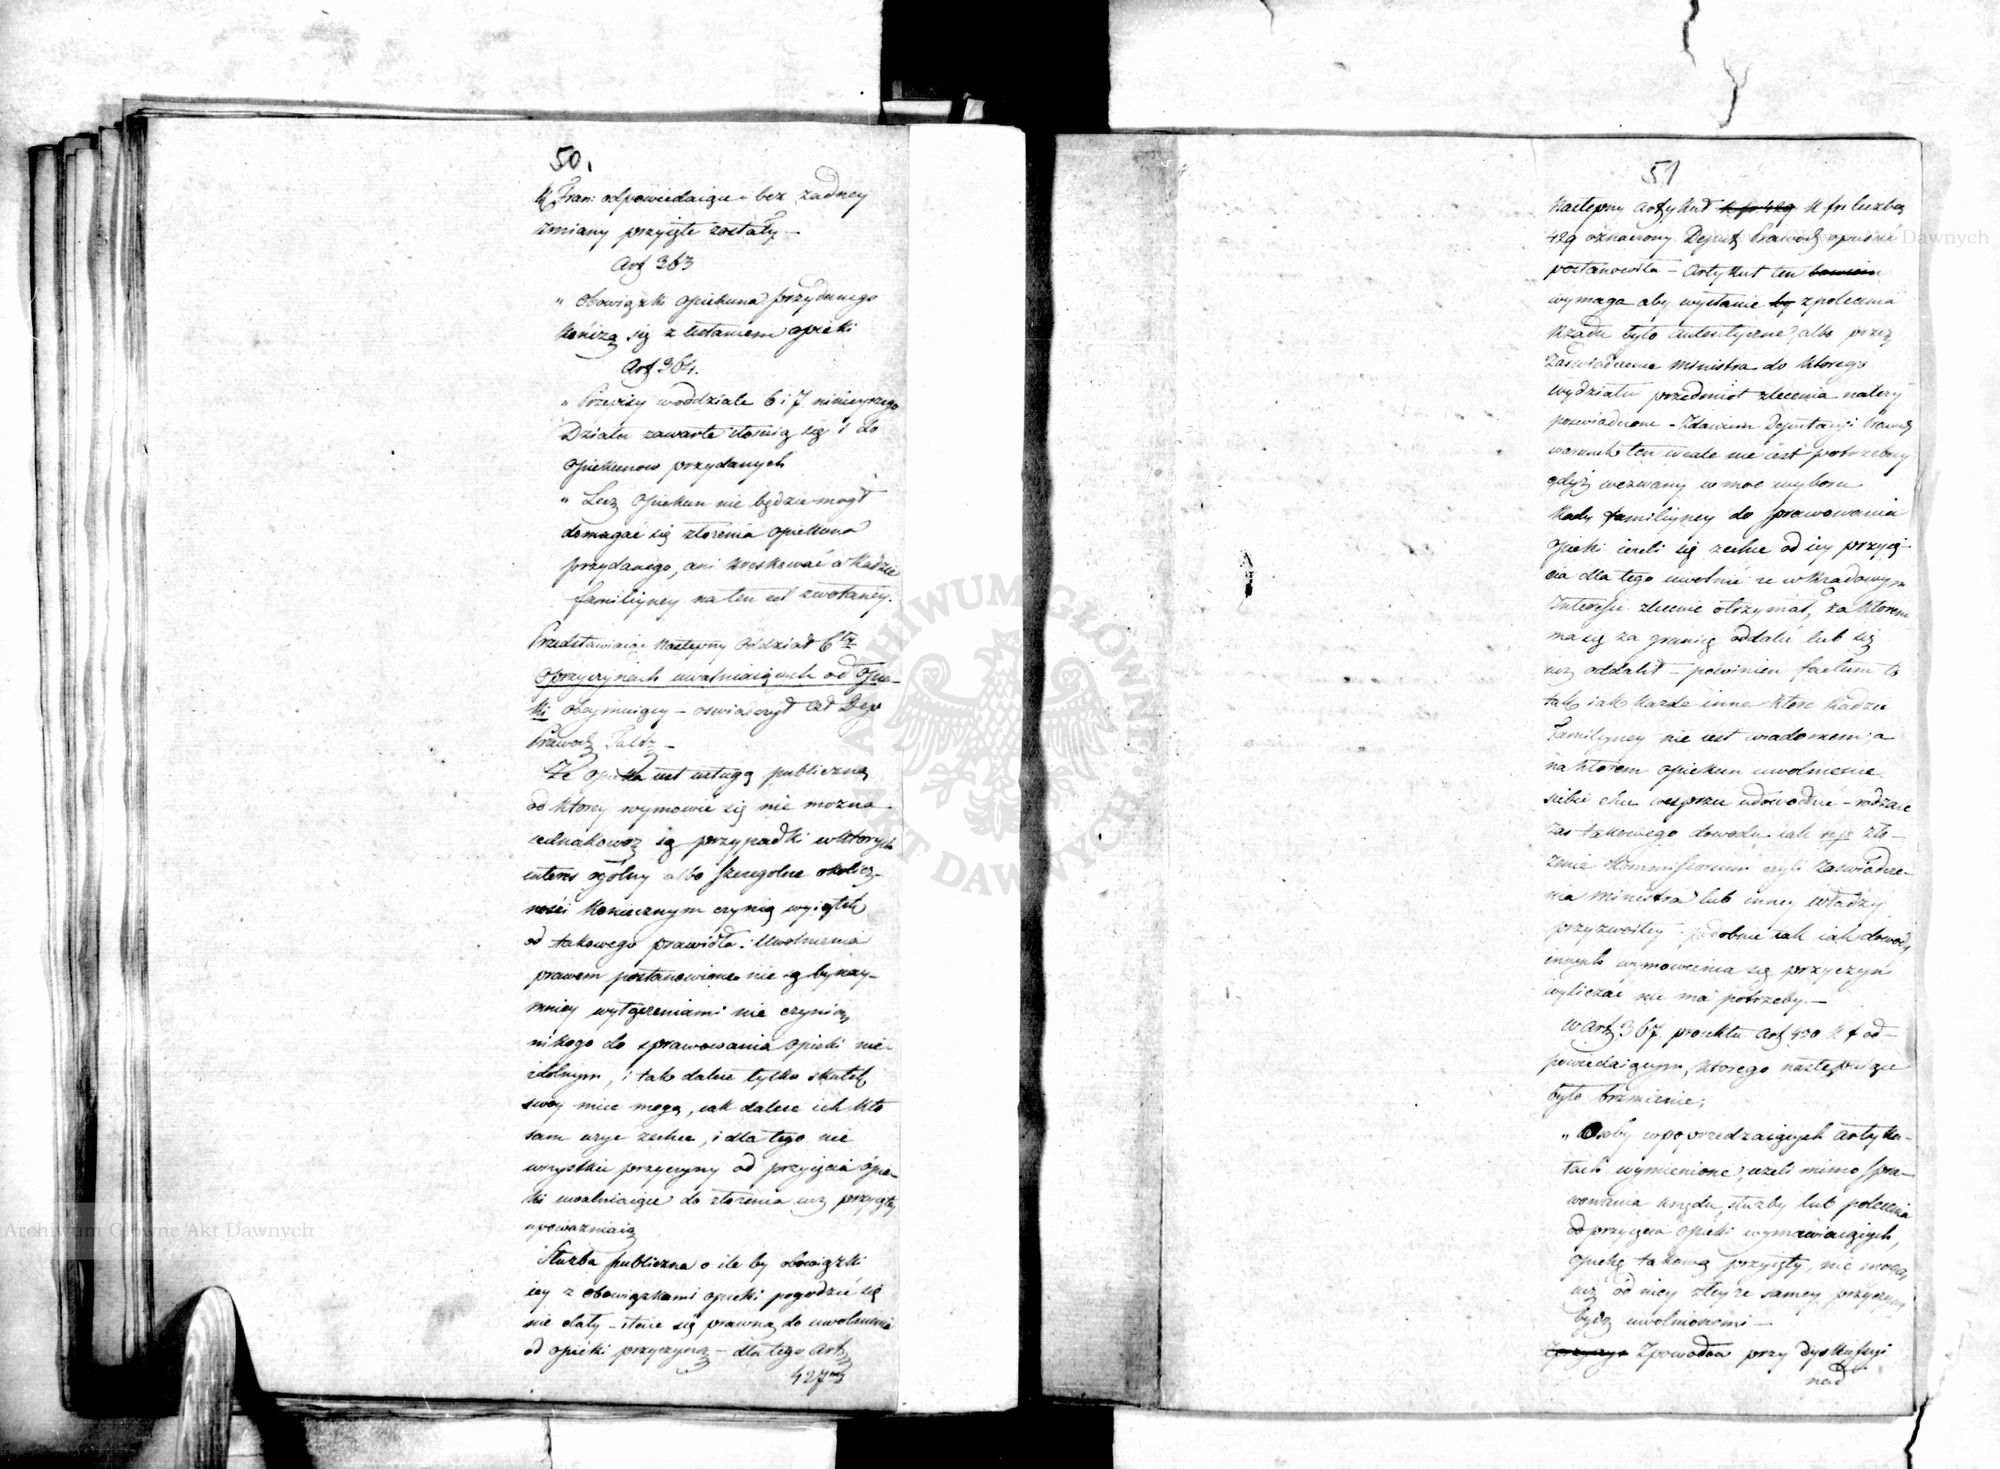 50.
K Fran: odpowiedaiące bez żadney
zmiany przyięte zostały –
Art 363
„ Obowiązki opiekuna przydanego
kończą się z ustaniem opieki
Art 364.
„ Przepisy w oddziale 6 i 7 ninieyszego
Działu zawarte stosuią się i do
opiekunow przydanych
„ Lecz opiekun nie będzie mogł
domagać się złożenia opiekuna
przydanego, ani kreskować w Radzie
familiyney na ten cel zwołaney.
Przedstawiaiąc następny oddział 6ty
o przyczynach uwalniaiących od opie-
ki obeymuiący – oświadczył Czł Dep
Prawod
Że opieka iest usługą publiczną
od ktorey wymowić się nie można
iednakowoż są przypadki w ktorych
interes ogolny albo szczegolne okolicz-
ności koniecznym czynią wyiątek
od takowego prawidła. Uwolnienia
prawem postanowione nie są bynay-
mniey wyłączeniami nie czynią
nikogo do sprawowania opieki nie-
zdolnym, i tak dalece tylko skutek
swoy mieć mogą, iak dalece ich kto
sam użyć zechce, i dla tego nie
wszystkie przyczyny od przyięcia opie-
ki uwalniaiące do złożenia iuż przyiętey
upoważniaią
Służba publiczna o ile by obowiązki
iey z obowiązkami opieki pogodzić się
nie dały – staie się prawną do uwolnienia
od opieki przyczyną – dla tego Art
427my
51
Następny artykuł k fr 429 K fr liczbą
429 oznaczony Deput Prawod opuścić
postanowiła – Artykuł ten bowiem
wymaga aby wysłanie by z polecenia
Rządu było autentyczne, albo przez
Zaświadczenie Ministra do ktorego
wydziału przedmiot zlecenia należy
poświadczone – Zdaniem Deputacyi Prawod
warunek ten wcale nie iest potrzebny
gdyż wezwany w moc wyboru
Rady familiyney do sprawowania
opieki ieżeli się zechce od iey przyię-
cia dla tego uwolnić że w Rządowym
Interesie zlecenie otrzymał, za ktorem
ma się za granicę oddalić lub się
iuż oddalił – powinien factum to
tak iak każde inne ktore Radzie
Familiyney nie iest wiadomem, a
na ktorem opiekun uwolnienie
siebie chce wesprzeć udowodnić – rodzaie
zaś takowego dowodu iak np: zło-
żenie kommissorium czyli zaświadcze-
nia Ministra lub inney władzy
przyzwoitey podobnie tak iak dowody
innych wymowienia się przyczyn
wyliczać nie ma potrzeby. –
W art 367 proiektu art 430 K f od-
powiedaiącym, ktorego następuiące
było brzmienie;
„ Osoby w poprzedzaiących artyku-
łach wymienione, ieżeli mimo spra-
wowania urzędu, służby lub polecenia
od przyięcia opieki wymawiaiących,
opiekę takową przyięły, nie mogą
iuż od niey z teyże samey przyczyny
bydź uwolnionemi –
Z powodow przy dyskussyi
nad